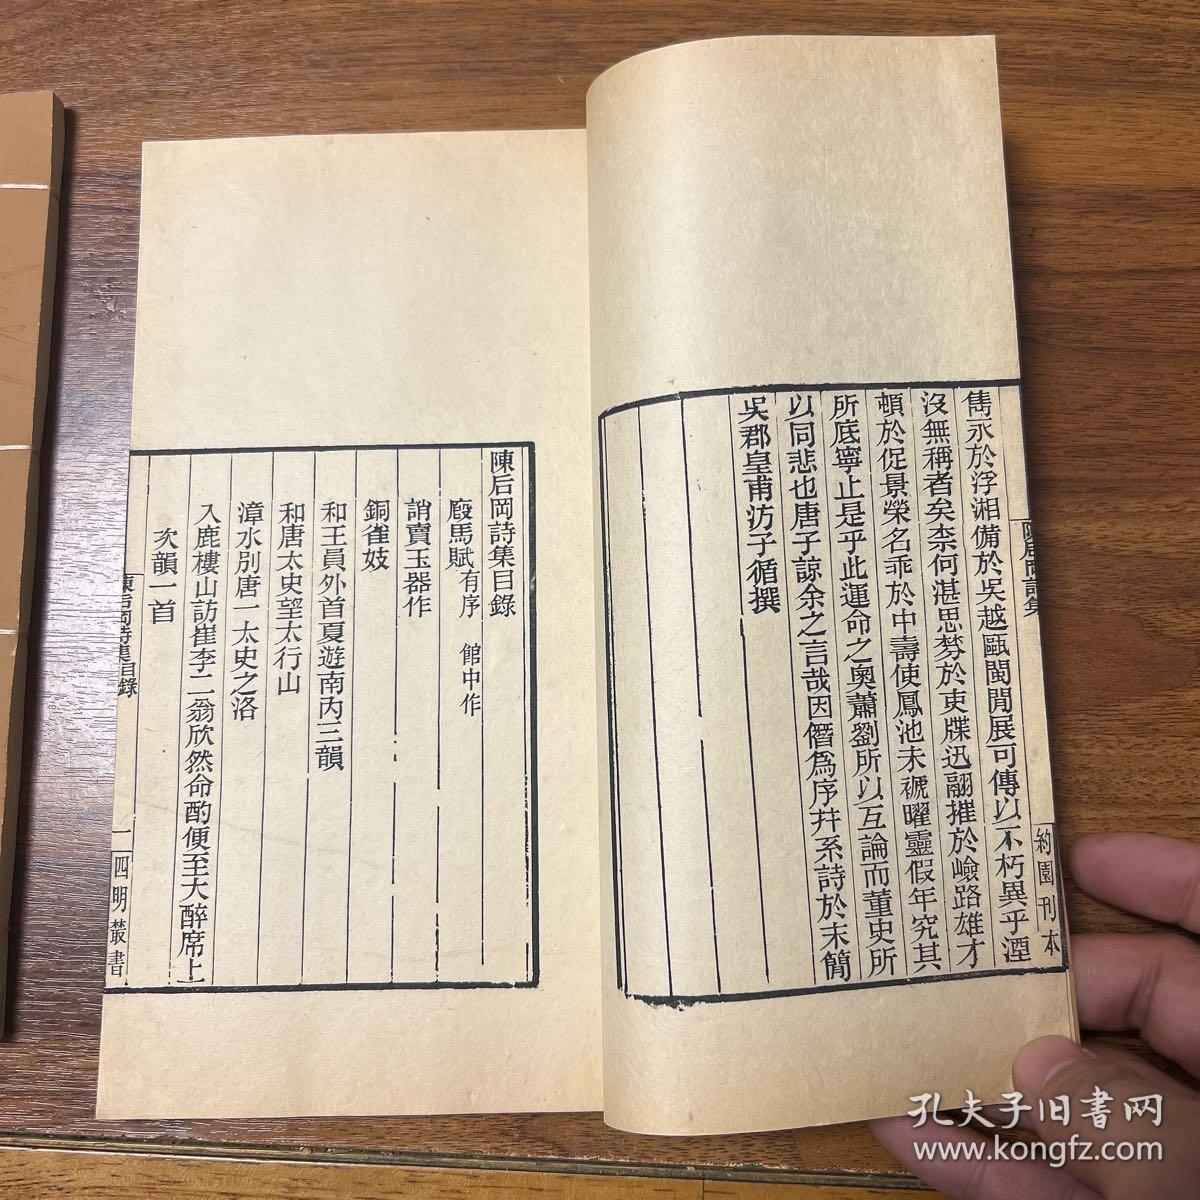 雋永於浮湘備於吳越甌閩閒展可傳以不朽異乎湮
沒無稱者矣柰何湛思棼於吏牒迅翮摧於嶮路雄才
頓於促景榮名乖於中壽使鳳池未褫曜靈假年究其
所底寧止是乎此運命之奧蕭劉所以互論而董史所
以同悲也唐子諒余之言哉因僭爲序幷系詩於末簡
吳郡皇甫汸子循撰
陳后岡詩集
約園刊本
陳后岡詩集目錄
廄馬賦有序 館中作
誚賣玉器作
銅雀妓
和王員外首夏遊南內三韻
和唐太史望太行山
漳水別唐一太史之洛
入鹿樓山訪崔李二翁欣然命酌便至大醉席上
次韻一首
陳后岡詩集目錄
一
四明叢書
孔夫子旧書网
www.kongfz.com